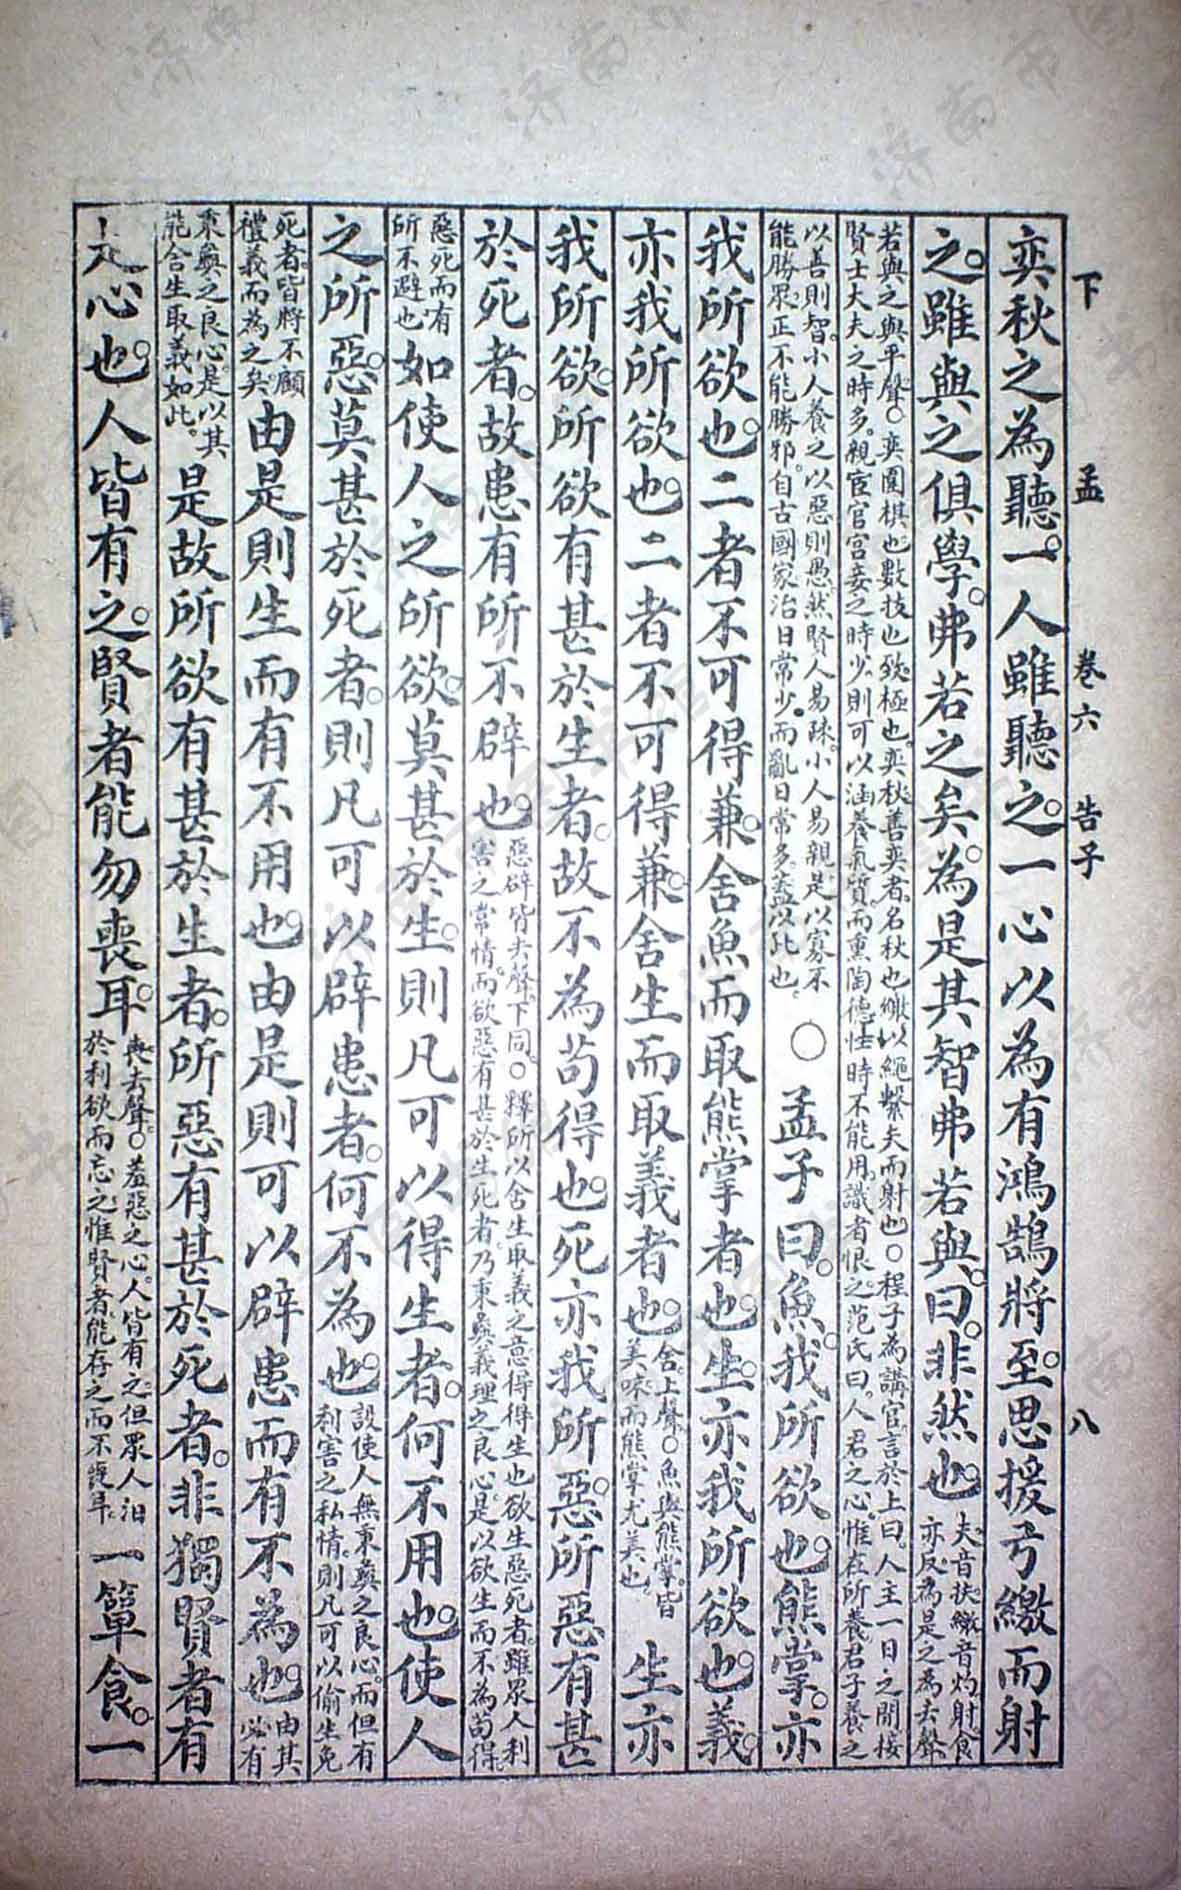 下孟 卷六 告子 八
奕秋之為聽一人雖聽之一心以為有鴻鵠將至思援弓繳而射
之雖與之俱學弗若之矣為是其智弗若與曰非然也夫音扶繳音灼射食亦反為是之為去聲
若與之與平聲○奕圍棋也數技也致極也奕秋善奕者名秋也繳以繩繫矢而射也○程子為講官言於上曰人主一日之間接
賢士大夫之時多親宦官宮妾之時少則可以涵養氣質而熏陶德性時不能用識者恨之范氏曰人君之心惟在所養君子養之
以善則智小人養之以惡則愚然賢人易疎小人易親是以寡不
能勝眾正不能勝邪自古國家治日常少而亂日常多蓋以此也
○孟子曰魚我所欲也熊掌亦
我所欲也二者不可得兼舍魚而取熊掌者也生亦我所欲也義
亦我所欲也二者不可得兼舍生而取義者也舍上聲○魚與熊掌皆美味而熊掌尤美也生亦
我所欲所欲有甚於生者故不為苟得也死亦我所惡所惡有甚
於死者故患有所不辟也惡辟皆去聲下同○釋所以舍生取義之意得得生也欲生惡死者雖眾人利害之常情而欲惡有甚於生死者乃秉彝義理之良心是以欲生而不為苟得
惡死而有所不避也如使人之所欲莫甚於生則凡可以得生者何不用也使人
之所惡莫甚於死者則凡可以辟患者何不為也設使人無秉彝之良心而但有利害之私情則凡可以偷生免
死者皆將不顧禮義而為之矣由是則生而有不用也由是則可以辟患而有不為也由其必有
秉彝之良心是以其能舍生取義如此是故所欲有甚於生者所惡有甚於死者非獨賢者有
是心也人皆有之賢者能勿喪耳喪去聲○羞惡之心人皆有之但眾人汨於利欲而忘之惟賢者能存之而不喪耳一簞食一